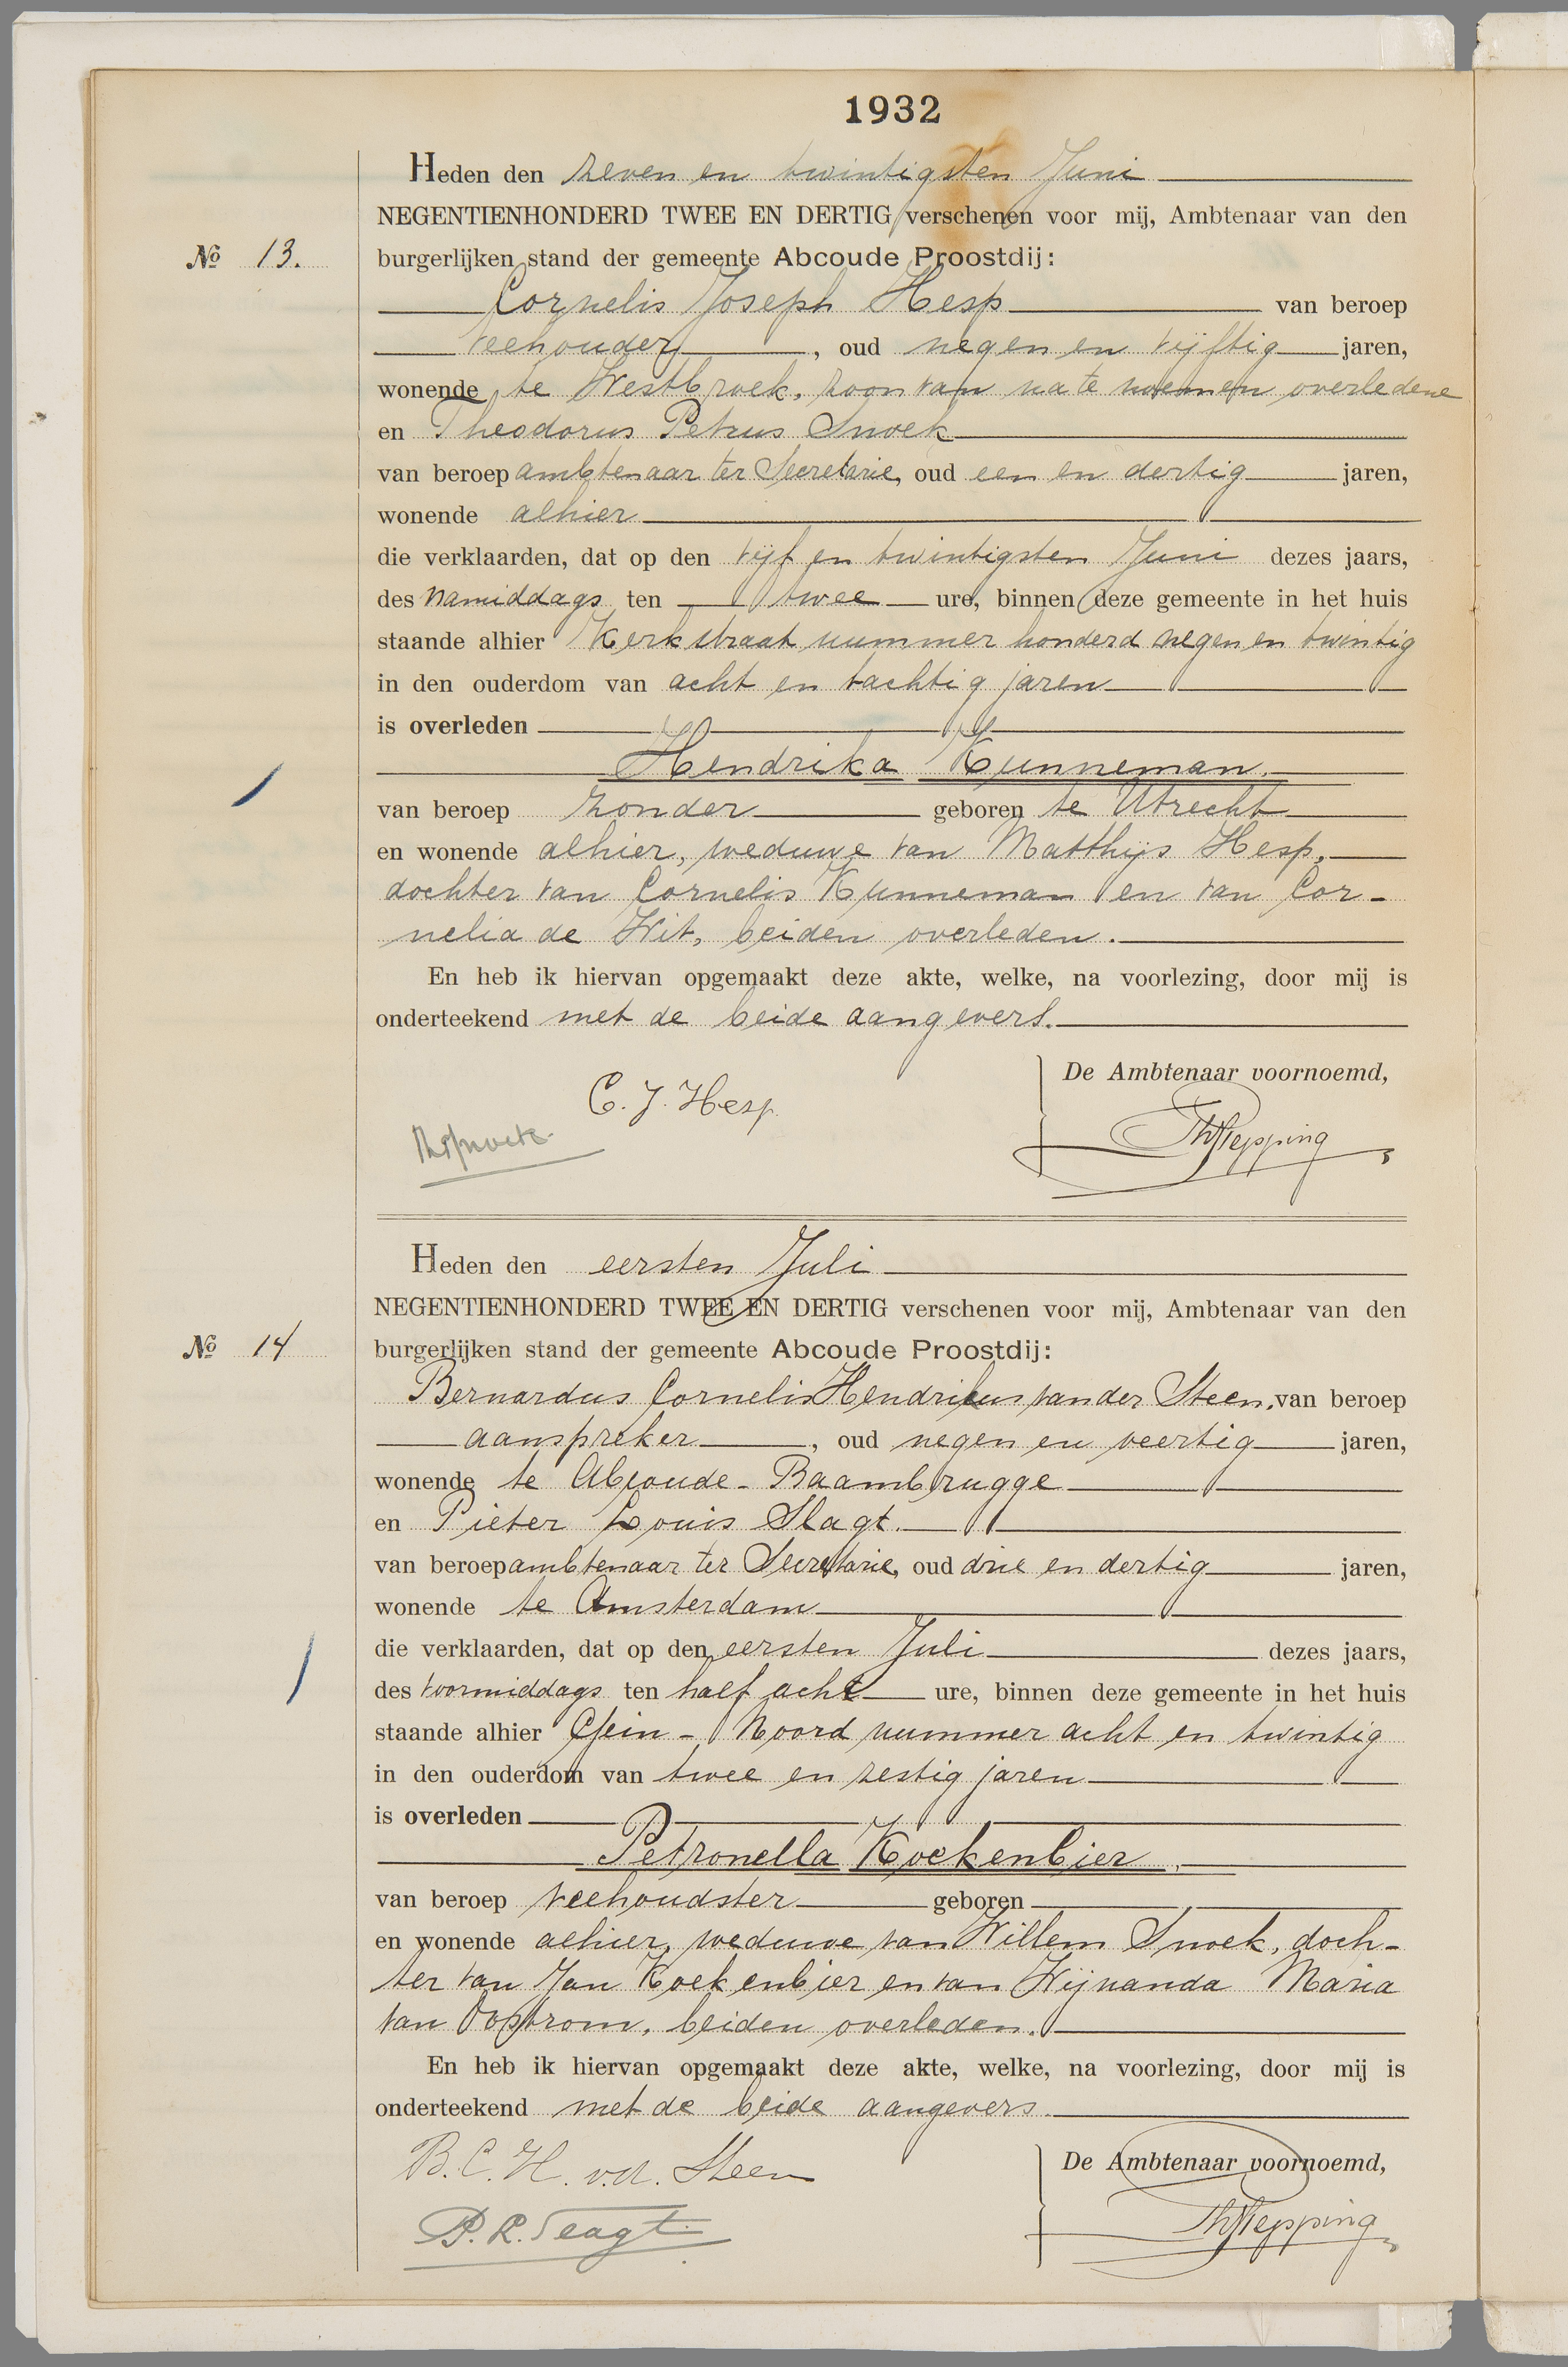 1932
Heden den zeven en twintigsten Juni
NEGENTIENHONDERD TWEE EN DERTIG verschenen voor mij, Ambtenaar van den
No 13.
burgerlijken stand der gemeente Abcoude Proostdij:
Cornelis Joseph Hesp van beroep
veehouder, oud negen en vijftig jaren,
wonende te Westbroek, zoon van na te noemen overledene
en Theodorus Petrus Snoek
van beroep ambtenaar ter Secretarie, oud een en dertig jaren,
wonende alhier
die verklaarden, dat op den vijf en twintigsten Juni dezes jaars,
des namiddags ten twee ure, binnen deze gemeente in het huis
staande alhier Kerkstraat nummer honderd negen en twintig
in den ouderdom van acht en tachtig jaren
is overleden
Hendrika Kunneman.
van beroep zonder geboren te Utrecht
en wonende alhier, weduwe van Matthijs Hesp,
dochter van Cornelis Kunneman en van Cor-
nelia de Wit, beiden overleden.
En heb ik hiervan opgemaakt deze akte, welke, na voorlezing, door mij is
onderteekend met de beide aangevers.
De Ambtenaar voornoemd,
C. J. Hesp
Heden den eersten Juli
NEGENTIENHONDERD TWEE EN DERTIG verschenen voor mij, Ambtenaar van den
No 14
burgerlijken stand der gemeente Abcoude Proostdij:
Bernardus Cornelis Hendrikus van der Steen, van beroep
aanspreker, oud negen en veertig jaren,
wonende te Abcoude-Baambrugge
en Pieter Louis Slagt.
van beroep ambtenaar ter Secretarie, oud drie en dertig jaren,
wonende te Amsterdam
die verklaarden, dat op den eersten Juli dezes jaars,
des voormiddags ten half acht ure, binnen deze gemeente in het huis
staande alhier Gein-Noord nummer acht en twintig
in den ouderdom van twee en zestig jaren
is overleden
Petronella Koekenbier.
van beroep veehoudster geboren
en wonende alhier, weduwe van Willem Snoek, doch-
ter van Jan Koekenbier en van Wijnanda Maria
van Oostrom, beiden overleden.
En heb ik hiervan opgemaakt deze akte, welke, na voorlezing, door mij is
onderteekend met de beide aangevers.
De Ambtenaar voornoemd,
B. C. H. v.d. Steen
P. L. Slagt